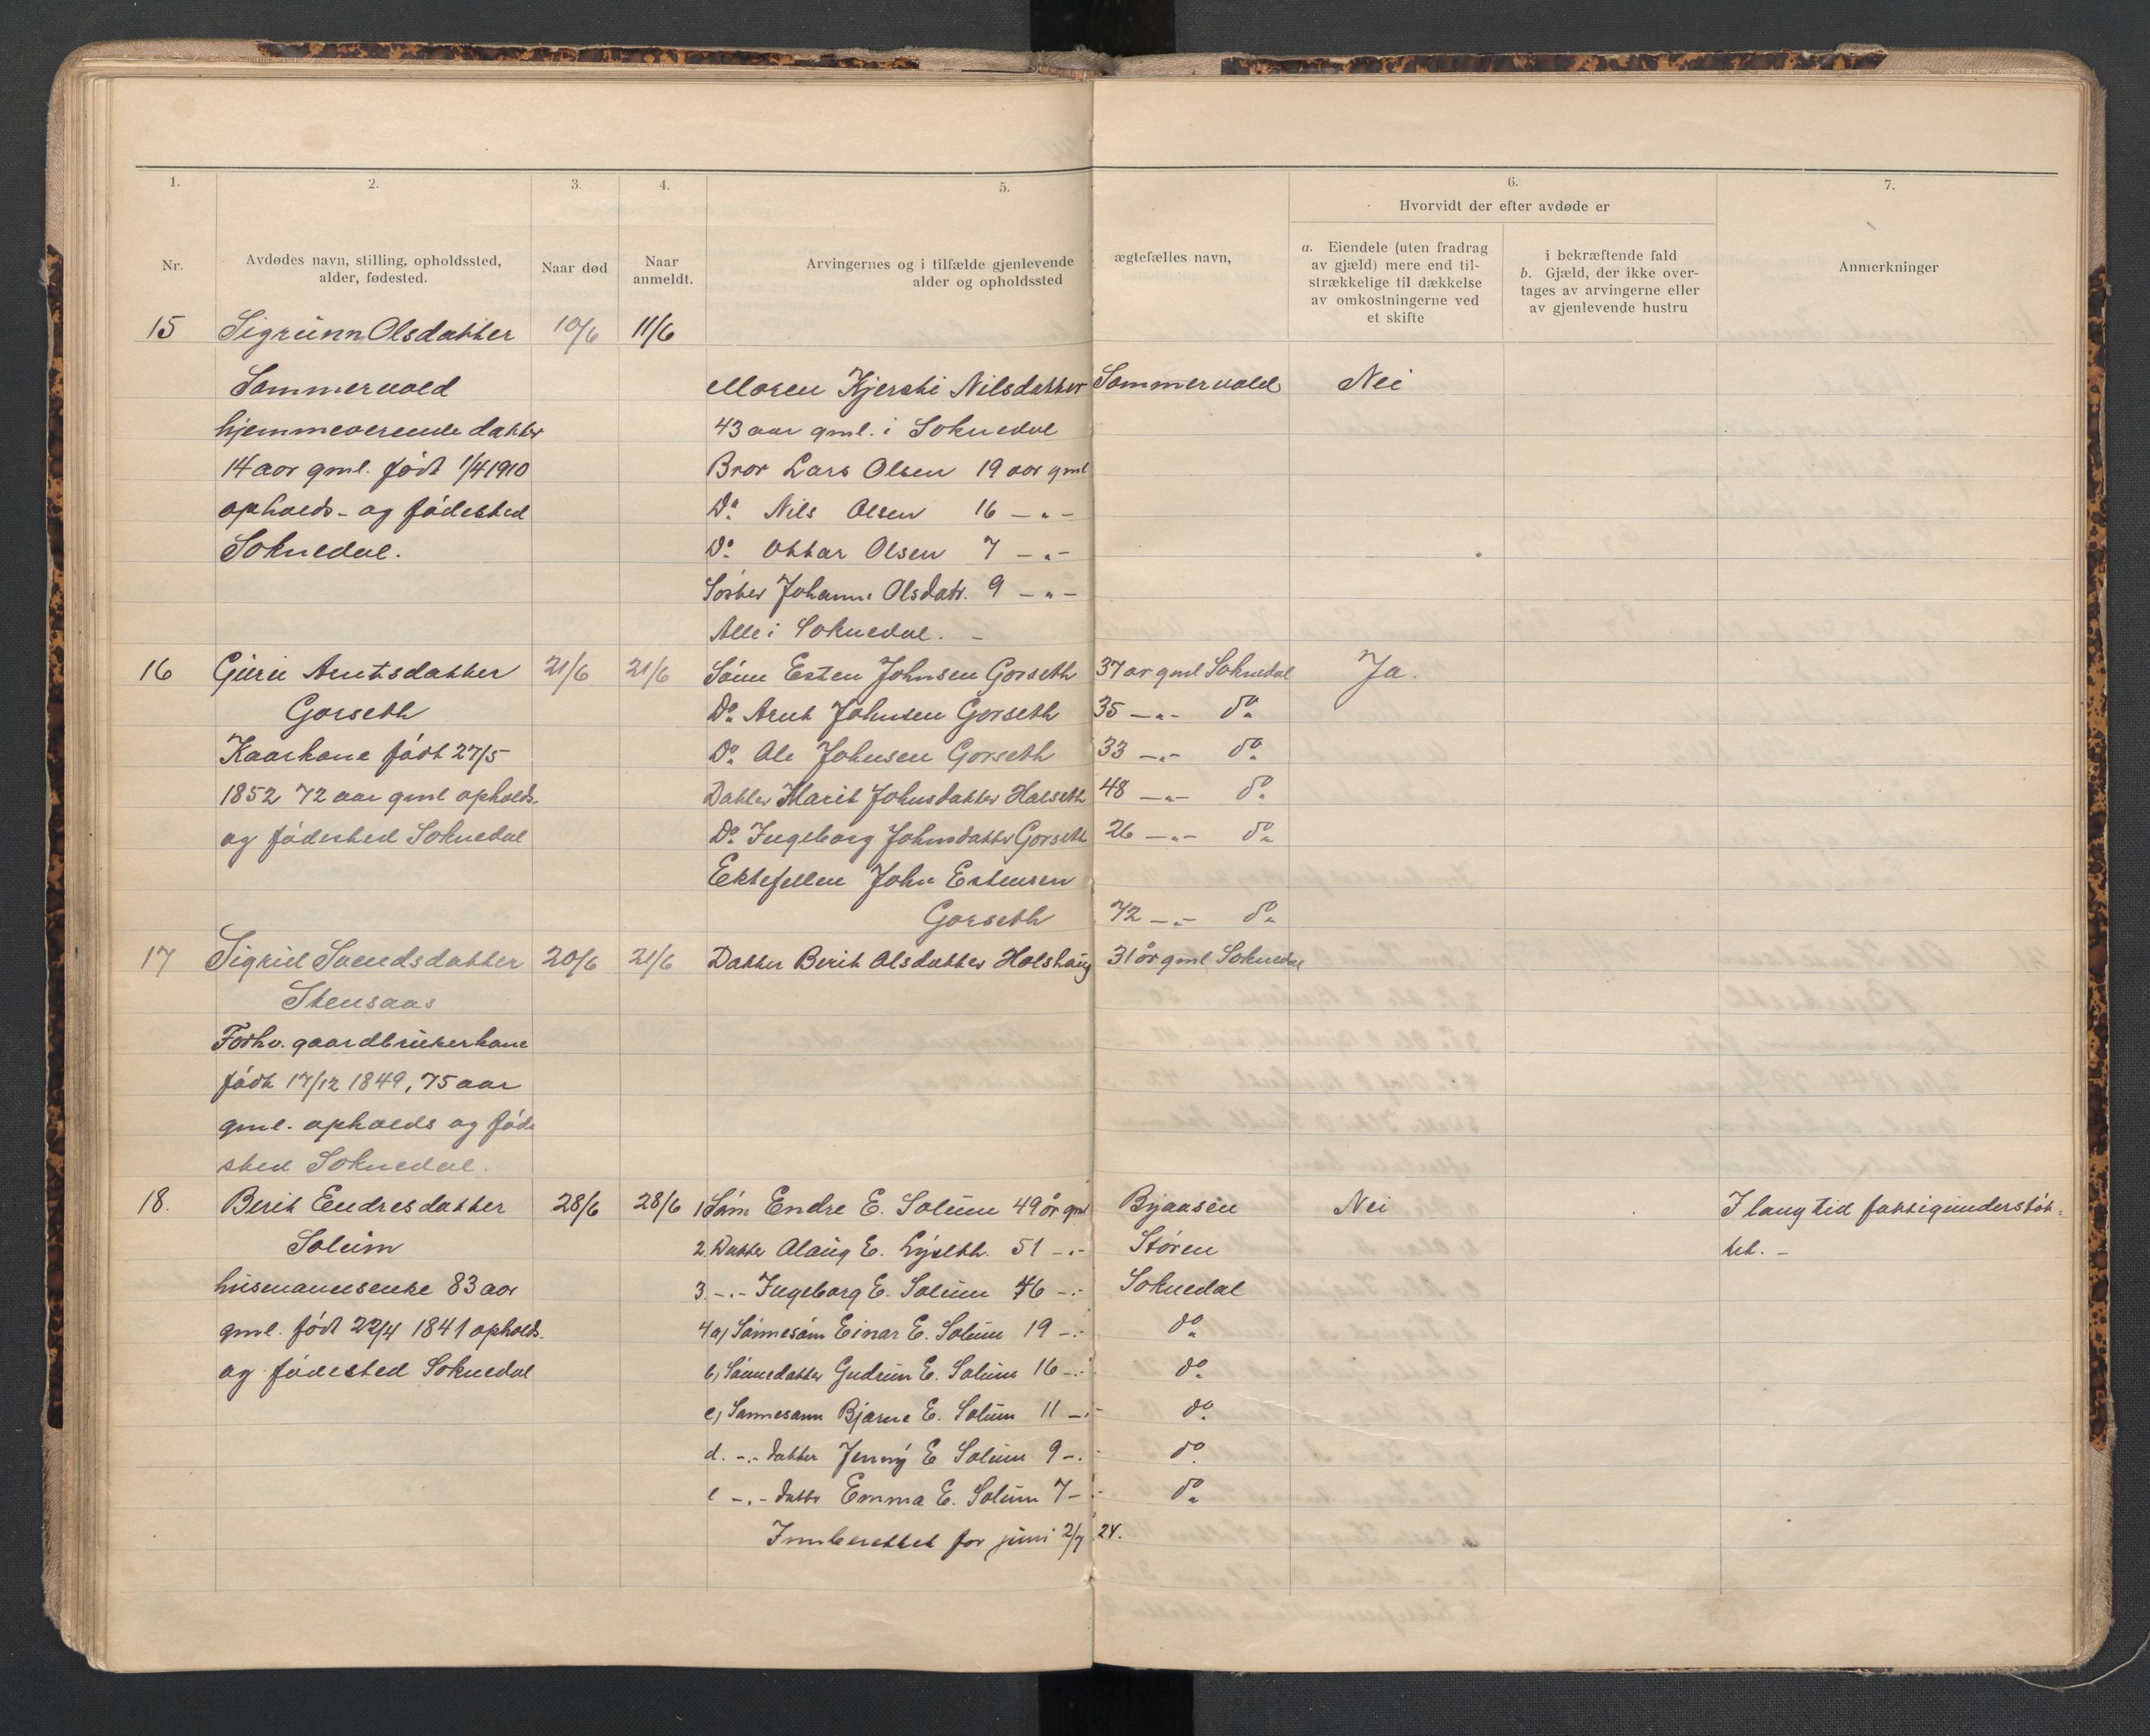 1. 2. 3. 4. 5. 6. 7.
Hvorvidt der efter avdøde er
Nr. Avdødes navn, stilling, opholdssted, alder, fødested. Naar død Naar anmeldt. Arvingernes og i tilfælde gjenlevende ægtefælles navn, alder og opholdssted
a. Eiendele (uten fradrag av gjæld) mere end tilstrækkelige til dækkelse av omkostningerne ved et skifte
i bekræftende fald b. Gjæld, der ikke overtages av arvingerne eller av gjenlevende hustru
Anmerkninger
15 Sigrunn Olsdatter 10/6 11/6
Sommervold Moren Kjersti Nilsdatter Sommervold Nei
hjemmeverende datter 43 aar gml. i Soknedal
14 aar gml. født 1/4 1910 Bror Lars Olsen 19 aar gml
opholds- og fødested Do. Nils Olsen 16 -"-
Soknedal. Do. Ottar Olsen 7 -"-
Søster Johanne Olsdatr. 9 -"-
Alle i Soknedal. -
16 Guru Arntsdatter 21/6 21/6 Sønn Esten Johnsen Gorseth 37 år gml Soknedal Ja.
Gorseth Do. Arnt Johnsen Gorseth 35 -"- do.
Kaarkone født 27/5 Do. Ole Johnsen Gorseth 33 -"- do.
1852 72 aar gml opholds- Datter Marit Johnsdatter Halseth 48 -"- do.
og fødested Soknedal Do. Ingeborg Johnsdatter Gorseth 26 -"- do.
Ektefellen John Estensen
Gorseth 72 -"- do.
17 Sigrid Svendsdatter 20/6 21/6 Datter Berit Olsdatter Holshaug 31 år gml Soknedal
Stensaas
Forhv. gaardbrukerkone
født 17/12 1849, 75 aar
gml. opholds og føde
sted Soknedal.
18. Berit Endresdatter 28/6 28/6 1 Sønn Endre E. Solum 49 år gml Bjaasen Nei I lang tid fattigunderstøt=
Solum 2. Datter Olaug E. 51 -"- Støren tet. -
husmannsenke 83 aar 3. -"- Ingeborg E. Solum 46 -"- Soknedal
gml. født 22/4 1841 opholds- 4 a) Sønnesønn Einar E. Solum 19 -"- do.
og fødested Soknedal b) Sønnedatter Gudrun E. Solum 16 -"- do.
c) Sønnesønn Bjarne E. Solum 11 -"- do.
d. -"- datter Jenny E Solum 9 -"- do.
e -"- datter Emma E. Solum 7 -"- do.
Innberettet for juni 2/7 24.